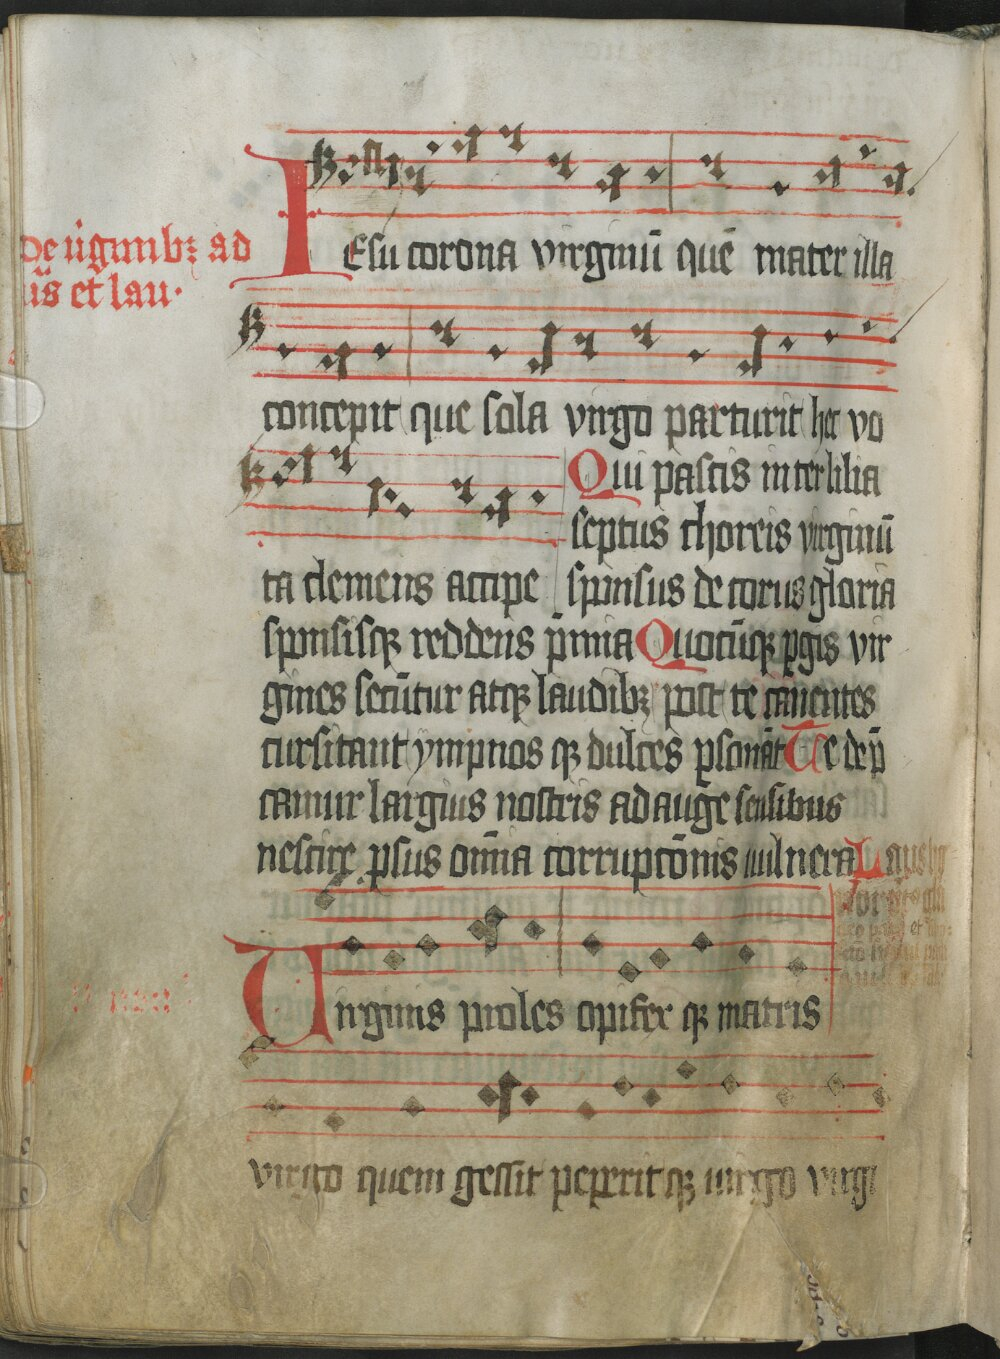 De ũginibꝫ ad
ũs et lau·
IEsu corona virginũ quẽ mater illa
concepit que sola virgo parturit hec vo
Qui pascis inter lilia
septus choreis virginũ
ta clemens accipe sponsus decorus gloria
sponsisqꝫ reddens p̃mia Quocũqꝫ ꝑgis vir
gines secũtur atqꝫ laudibꝫ post te canentes
cursitant ympnos qꝫ dulces ꝑsonãt Te dep̃
camur largius nostris adauge sensibus
nescire ꝓsus oĩa corrupcõnis uulnera Laus
Uirginis proles opifex qꝫ matris
virgo quem gessit peperit qꝫ uirgo virgi